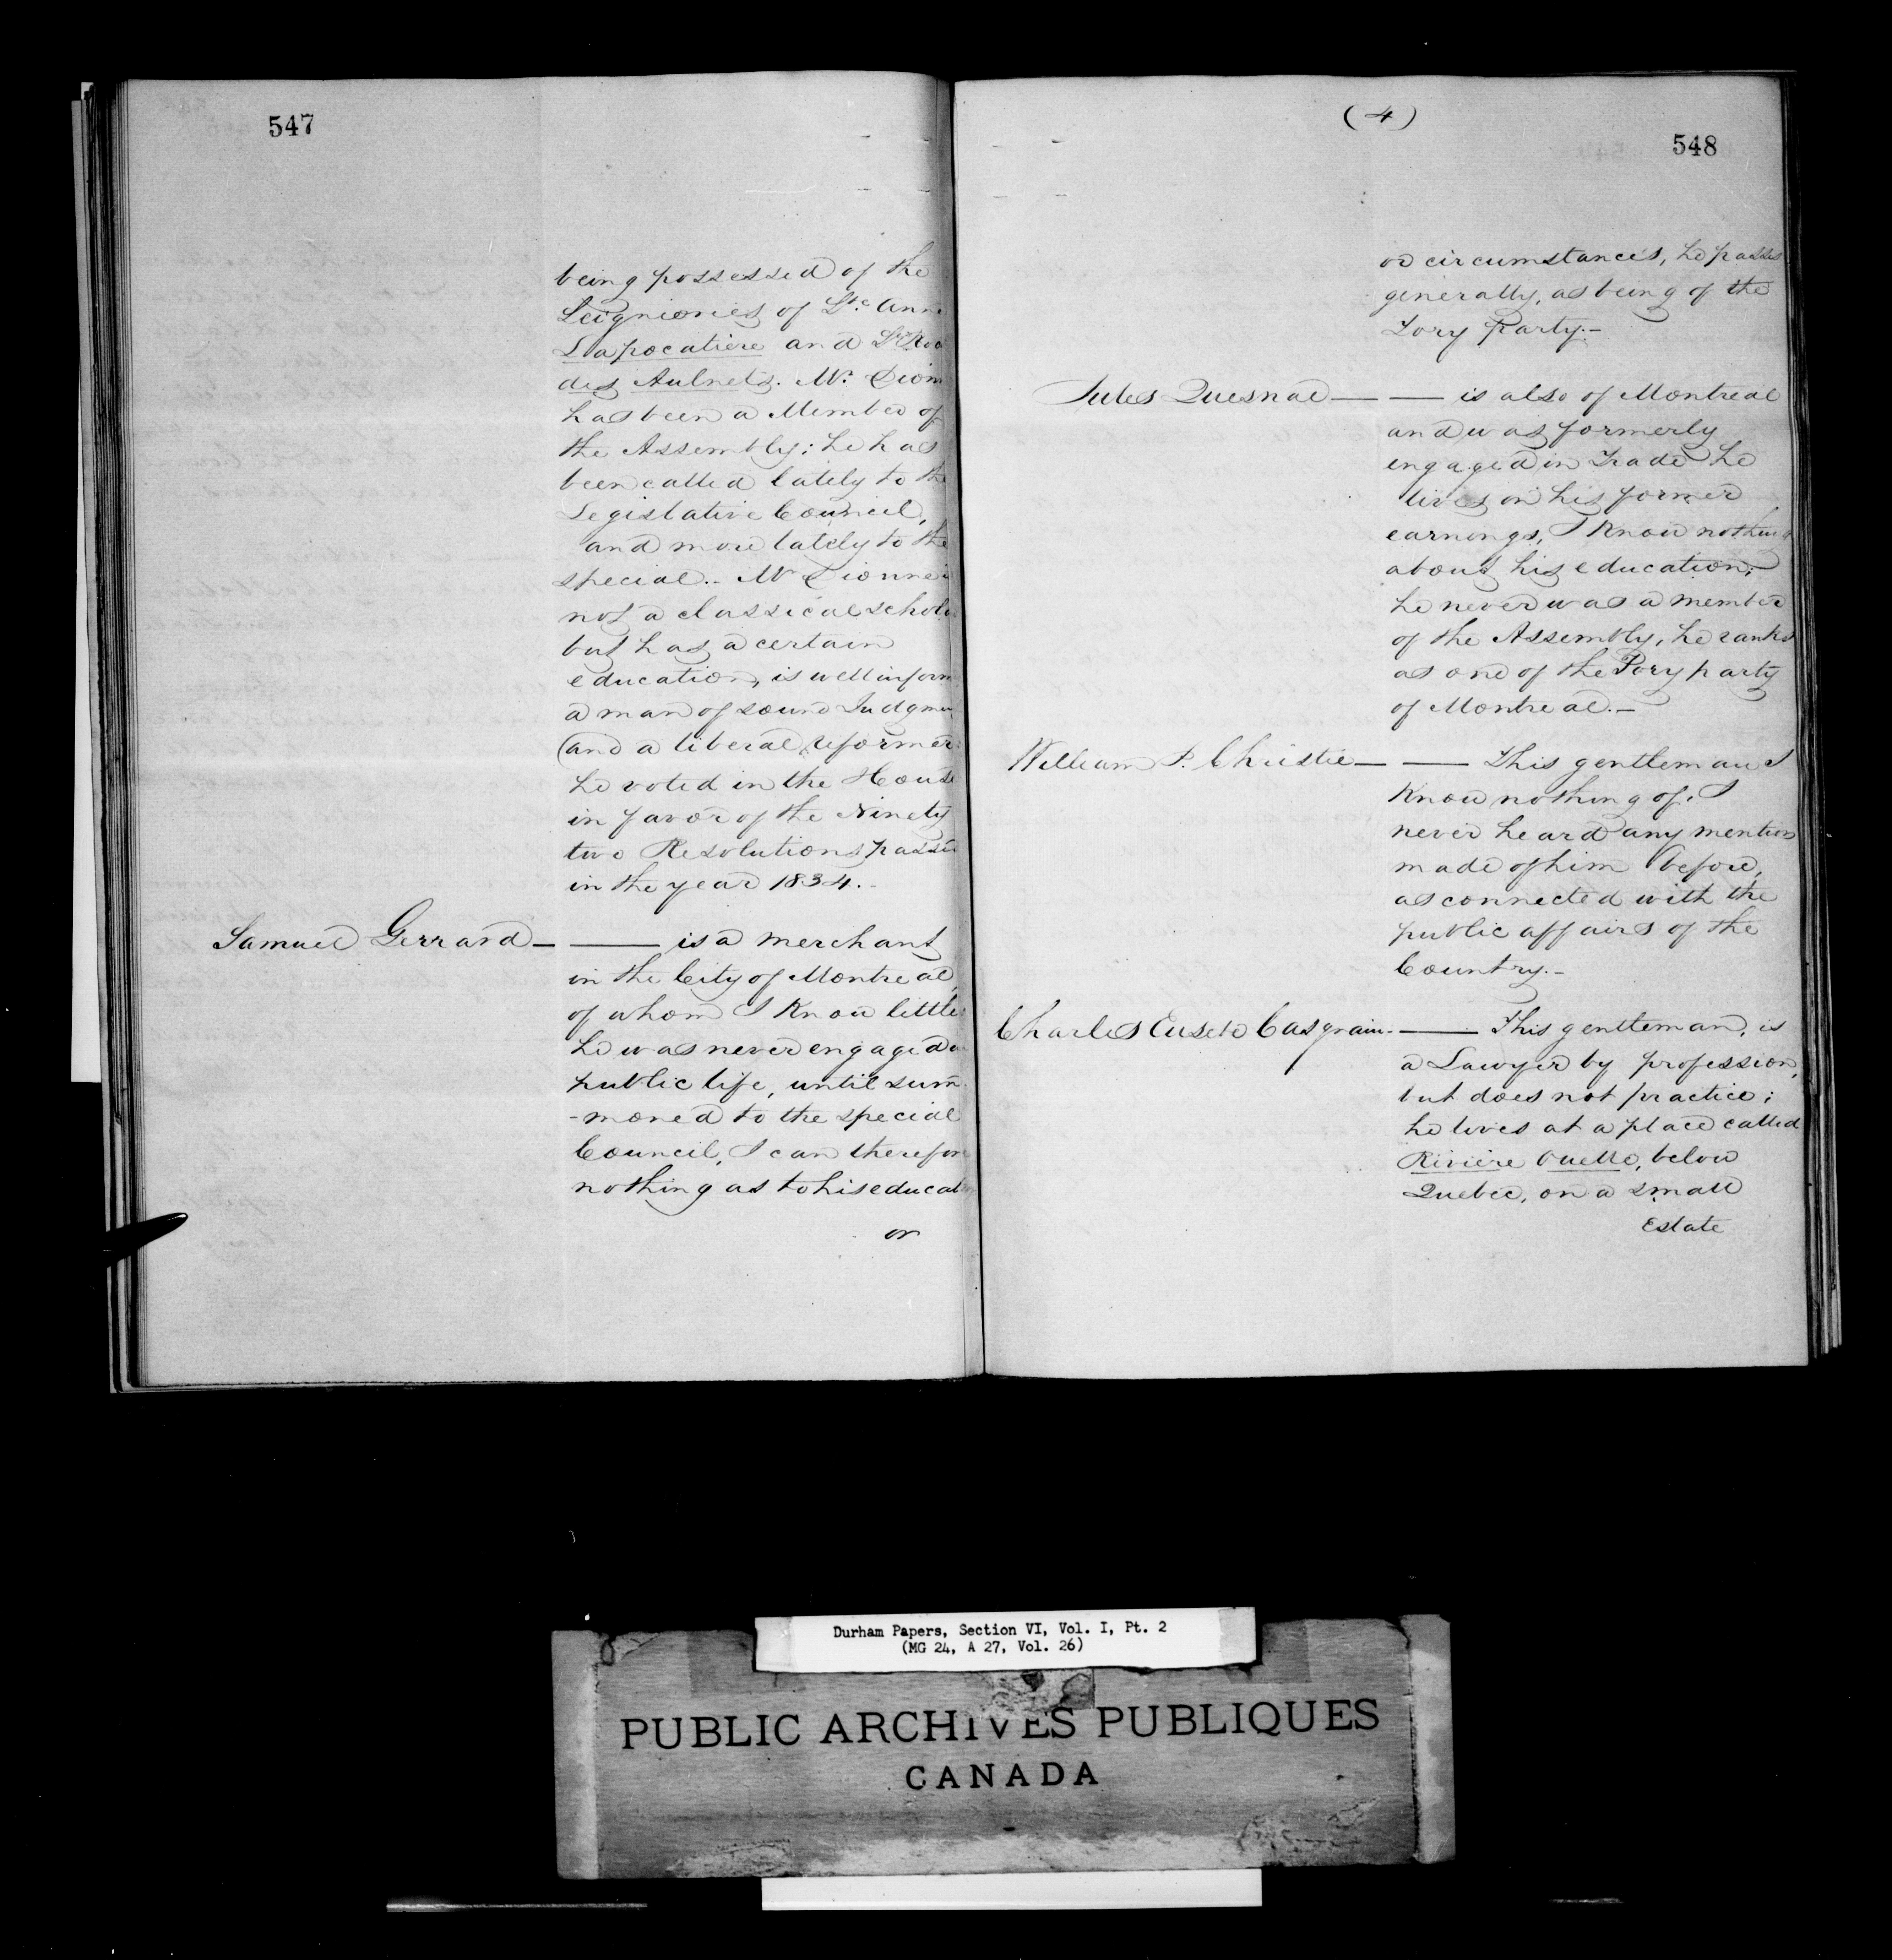 547
being possessed of the
Seigniories of Ste. Ann
Lapocatiere and St. Roc
des Aulnets. Mr. Dionn
has been a Member of
the Assembly; he has
been called lately to the
Legislative Council,
and more lately to the
special.. Mr Dionne i
not a classical schola
but has a certain
education, is well inform
a man of sound Judgmen
(and a liberal reformer:
he voted in the House
in favor of the Ninety
two Resolutions passed
in the year 1834.-
Samuel Gerrard — — is a merchant
in the City of Montreal,
of whom I know little:
he was never engaged in
public life, until sum-
-moned to the special
Council, I can therefore
nothing as to his educat
or
(4)
548
or circumstances, he passes
generally, as being of the
Tory Party.-
Jules Quesnel — — is also of Montreal
and was formerly
engaged in Trade he
lives on his former
earnings, I know nothing
about his education;
he never was a member
of the Assembly, he ranks
as one of the Tory party
of Montreal.-
William P. Christie — — This gentleman I
know nothing of. I
never heard any mention
made of him before,
as connected with the
public affairs of the
Country.-
Charles Euseb Casgrain. — This gentleman, is
a Lawyer by profession,
but does not practice;
he lives at a place called
Rivière Ouelle, below
Quebec, on a small
Estate
Durham Papers, Section VI, Vol. I, Pt. 2
(MG 24, A 27, Vol. 26)
PUBLIC ARCHIVES PUBLIQUES
CANADA